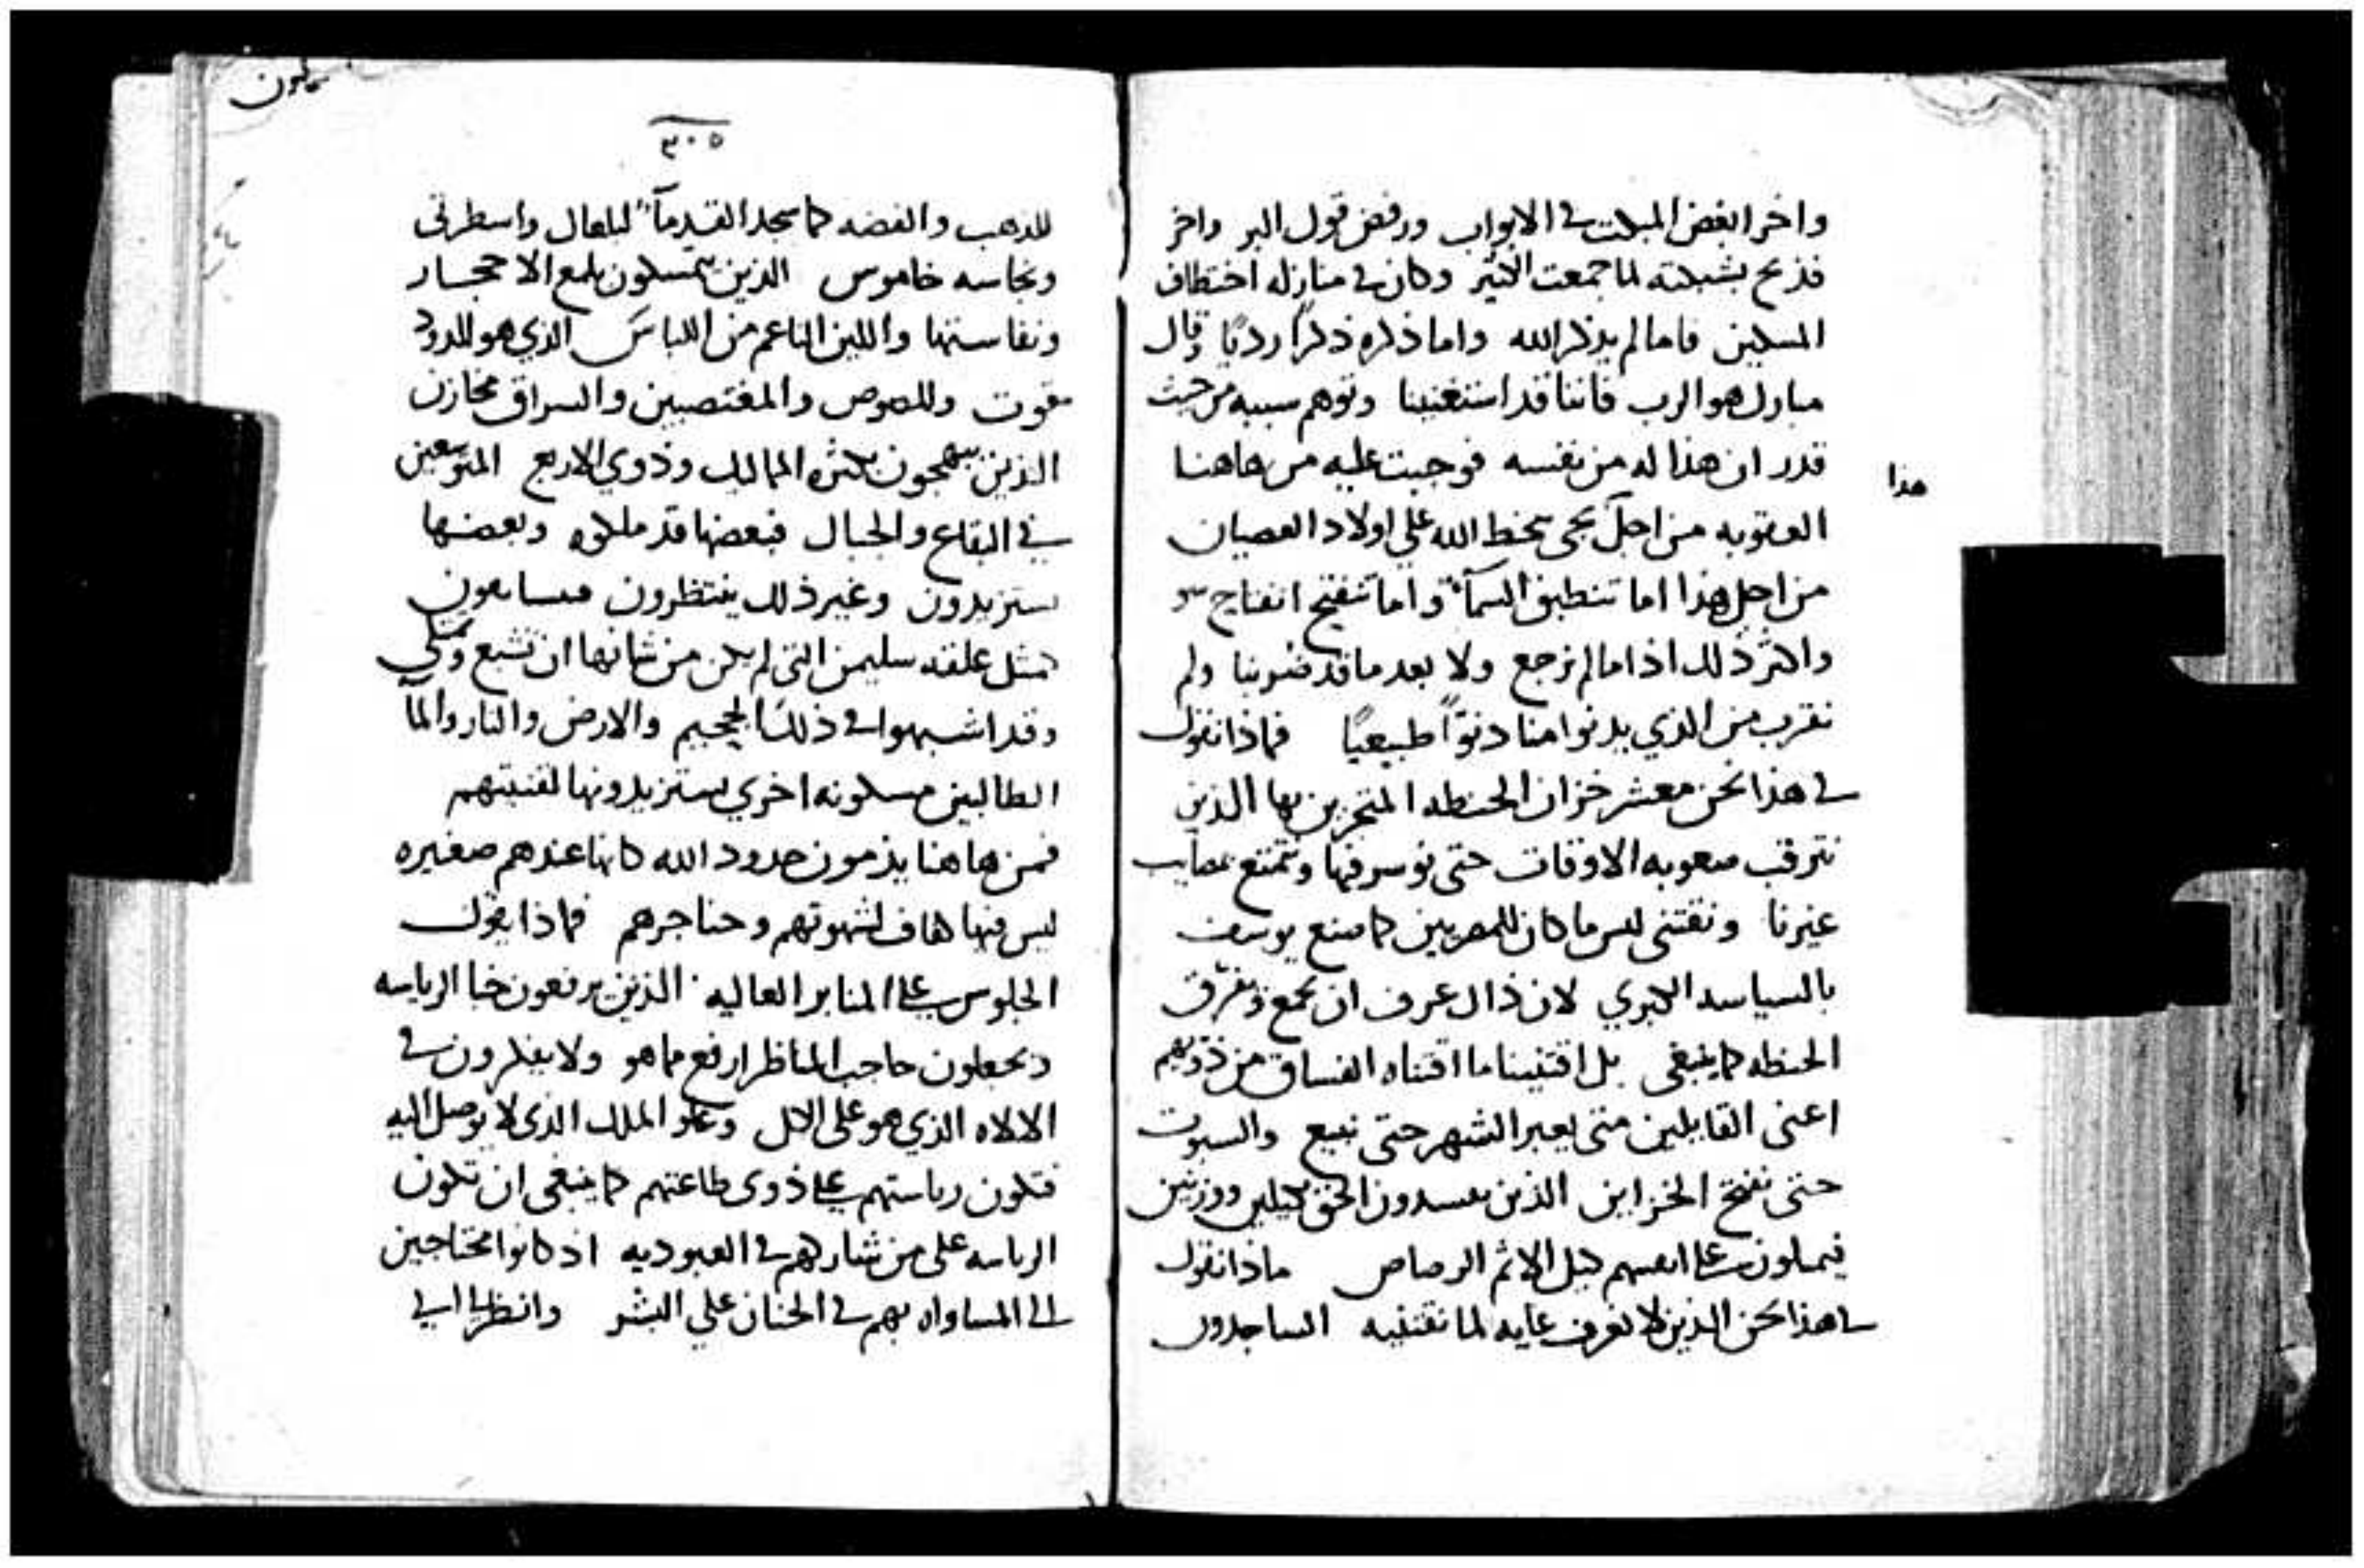 واخر ابغض المبكت في الابواب ورفض قول البر واخر
فذبح بشبكته لما جمعت الكثير وكان في منازله اختطاف
المسكين فاما لم يذكر الله واما ذكره ذكرًا رديًا وقال
مبارك هو الرب فاننا قد استغنينا وتوهم سببه من حيث
قدر ان هذا له من نفسه فوجبت عليه من هاهنا
هذا
العقوبه من اجل يجي سخط الله علي اولاد العصيان
من اجل هذا اما تنطبق السمآ واما تنفتح انفتاح
واكثر ذلك اذا ما لم نرجع ولا بعد ما قد ضربنا ولم
نقرب من الذي يدنوا منا دنوًا طبيعيًا فماذا نقول
في هذا نحن معشر خزان الحنطه المتجرين بها الذين
نترقب صعوبه الاوقات حتى نوسر فيها ونتمتع بمصايب
غيرنا ونقتني ليس ما كان للمصريين كما صنع يوسف
بالسياسه الكبري لان ذاك عرف ان يجمع ويفرّق
الحنطه كما ينبغي بل اقتنينا ما اقتناه الفساق من ذويهم
اعني القايلين متي يعبر الشهر حتى نبيع والسبوت
حتى نفتح الخزاين الذين يفسدون الحق بكيلين ووزنين
فيملون علي انفسهم كيل الاثم الرصاص ماذا نقول
في هذا نحن الذين لا نعرف غايه لما نقتنيه الساجدون
٣٠٥
للذهب والفضه كما سجد القدمآ لباعال واسطرتي
ونجاسه خاموس الذين يتمسكون بلمع الاحجار
ونفاستها واللين الناعم من اللباس الذي هو للدود
قوت وللصوص والمغتصبين والسراق مخازن
الذين يبهجون بكثره المماليك وذوي الاربع المتوسعين
في البقاع والجبال فبعضها قد ملكوه وبعضها
يستزيدون وغير ذلك ينتظرون
كمثل علقه سليمن التي لم يكن من شانها ان تشبع وتمتلي
وقد اشبهوا في ذلك الجحيم والارض والنار والمآ
الطالبين مسكونه اخري يستزيدونها لقنيتهم
فمن هاهنا يذمون حدود الله كانها عندهم صغيره
ليس فيها كفاف لشهوتهم وحناجرهم فماذا يقول
الجلوس علي المنابر العاليه الذين يرفعون خبا الرياسه
ويجعلون حاجب المناظر ارفع مما هو ولا يفكرون في
الالاه الذي هو علي الكل وعلو الملك الذي لا يوصل اليه
فتكون رياستهم علي ذوي طاعتهم كما ينبغي ان تكون
الرياسه علي من شاركهم في العبوديه اذ كانوا محتاجين
الي المساواه بهم في الحنان علي البشر وانظر الي